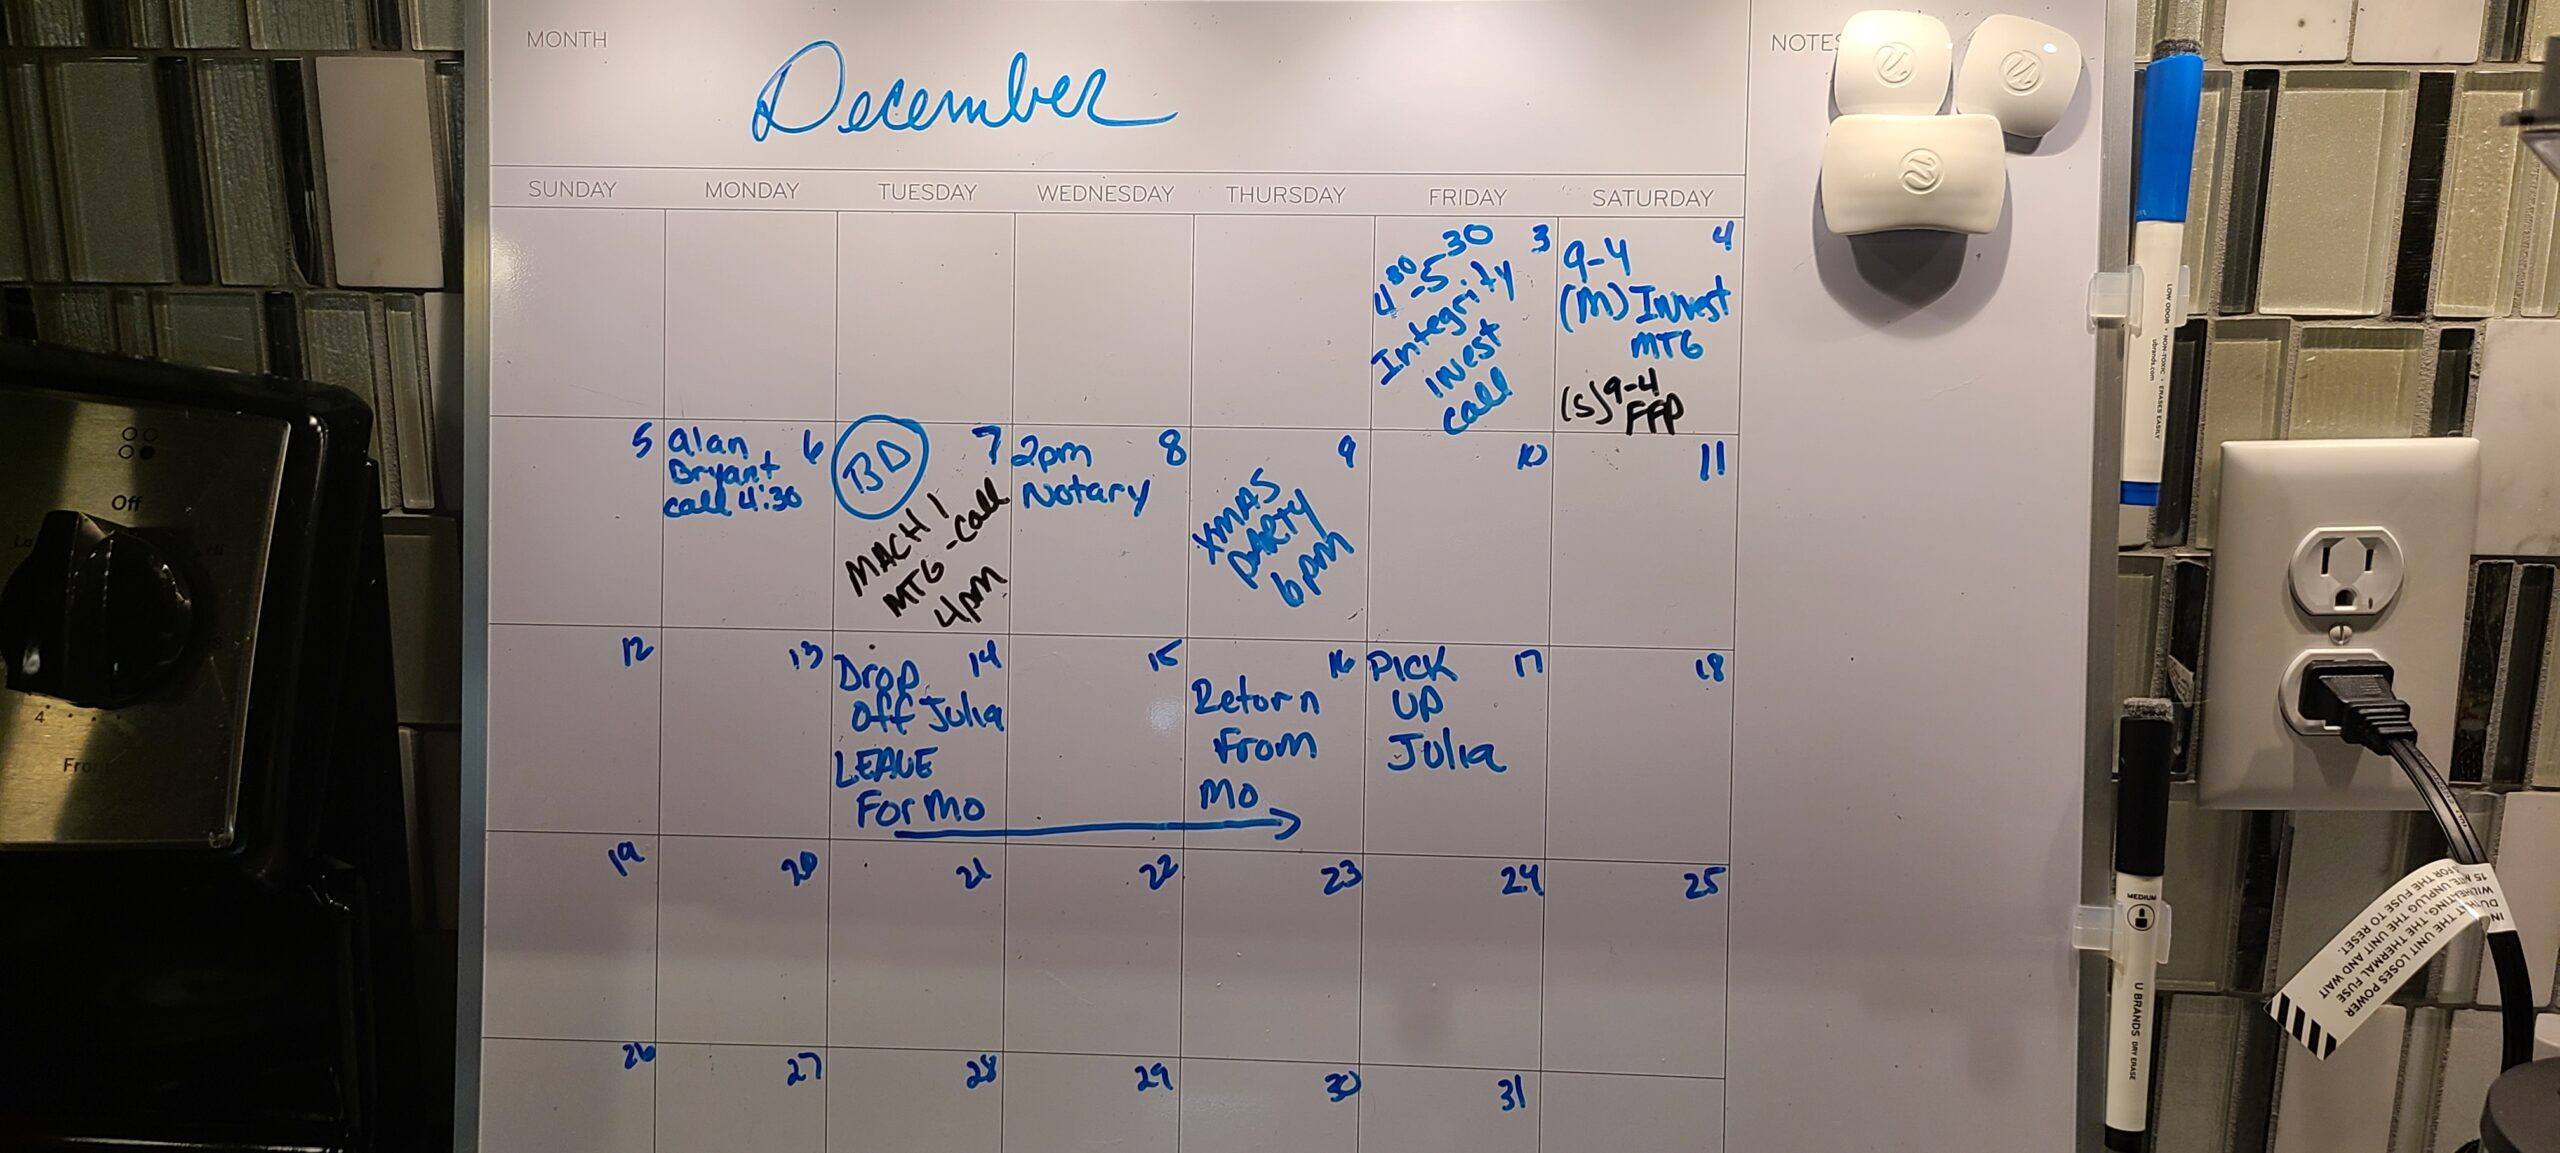 MONTH
December
NOTES
SUNDAY MONDAY TUESDAY WEDNESDAY THURSDAY FRIDAY SATURDAY
3
4:30-5:30
Integrity
INvest
call
4
9-4
(M) INvest
MTG
(S) 9-4
FFP
5
6
alan
Bryant
call 4:30
7
BD
MACH 1
MTG-call
4pm
8
2pm
Notary
9
XMAS
PARTY
6pm
10
11
12
13
14
Drop
Off Julia
LEAVE
For Mo
15
16
Return
From
Mo
17
PICK
UP
Julia
18
19
20
21
22
23
24
25
26
27
28
29
30
31
Off
Lo
Hi
4
LOW ODOR • NON-TOXIC • ERASES EASILY
ubrands.com
MEDIUM
U BRANDS DRY ERASE
THE UNIT LOSES POWER
THE THERMAL FUSE
UNPLUG THE UNIT AND WAIT
15
FOR THE FUSE TO RESET.